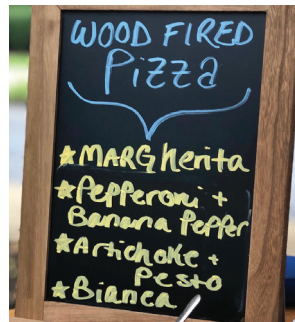 WOOD FIRED
Pizza
★MARGherita
★Pepperoni +
Banana Pepper
★Artichoke +
Pesto
★Bianca